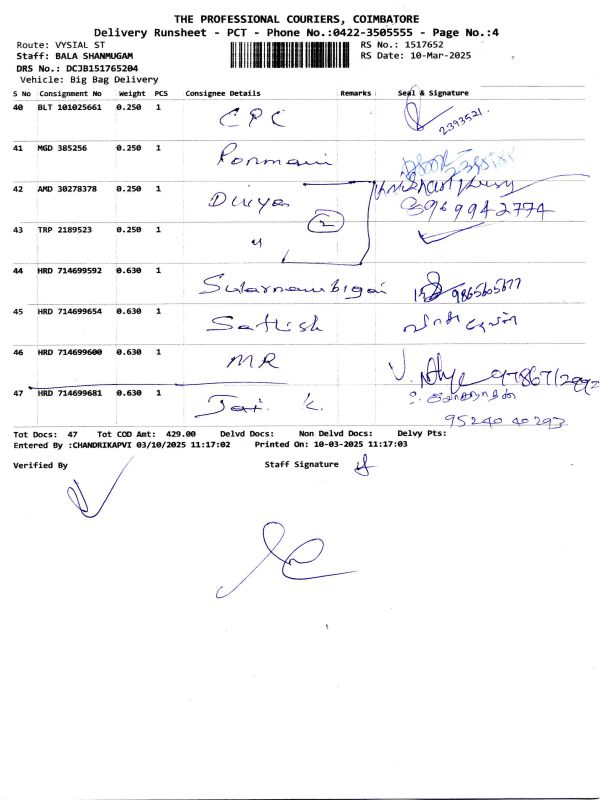 THE PROFESSIONAL COURIERS, COIMBATORE
Delivery Runsheet - PCT - Phone No.:0422-3505555 - Page No.:4
Route: VYSIAL ST
RS No.: 1517652
Staff: BALA SHANMUGAM
RS Date: 10-Mar-2025
DRS No.: DCJB151765204
Vehicle: Big Bag Delivery
S No Consignment No Weight PCS Consignee Details Remarks Seal & Signature
40 BLT 101025661 0.250 1 CPC 2393521
41 MGD 385256 0.250 1 Ponmani
42 AMD 30278378 0.250 1 Diviya 8969942774
2
43 TRP 2189523 0.250 1 "
44 HRD 714699592 0.630 1 Sularnambigai 9865605677
45 HRD 714699654 0.630 1 Sathish
46 HRD 714699600 0.630 1 MR
47 HRD 714699681 0.630 1 Jai. K. 95240 40293
Tot Docs: 47 Tot COD Amt: 429.00 Delvd Docs: Non Delvd Docs: Delvy Pts:
Entered By :CHANDRIKAPVI 03/10/2025 11:17:02 Printed On: 10-03-2025 11:17:03
Verified By Staff Signature